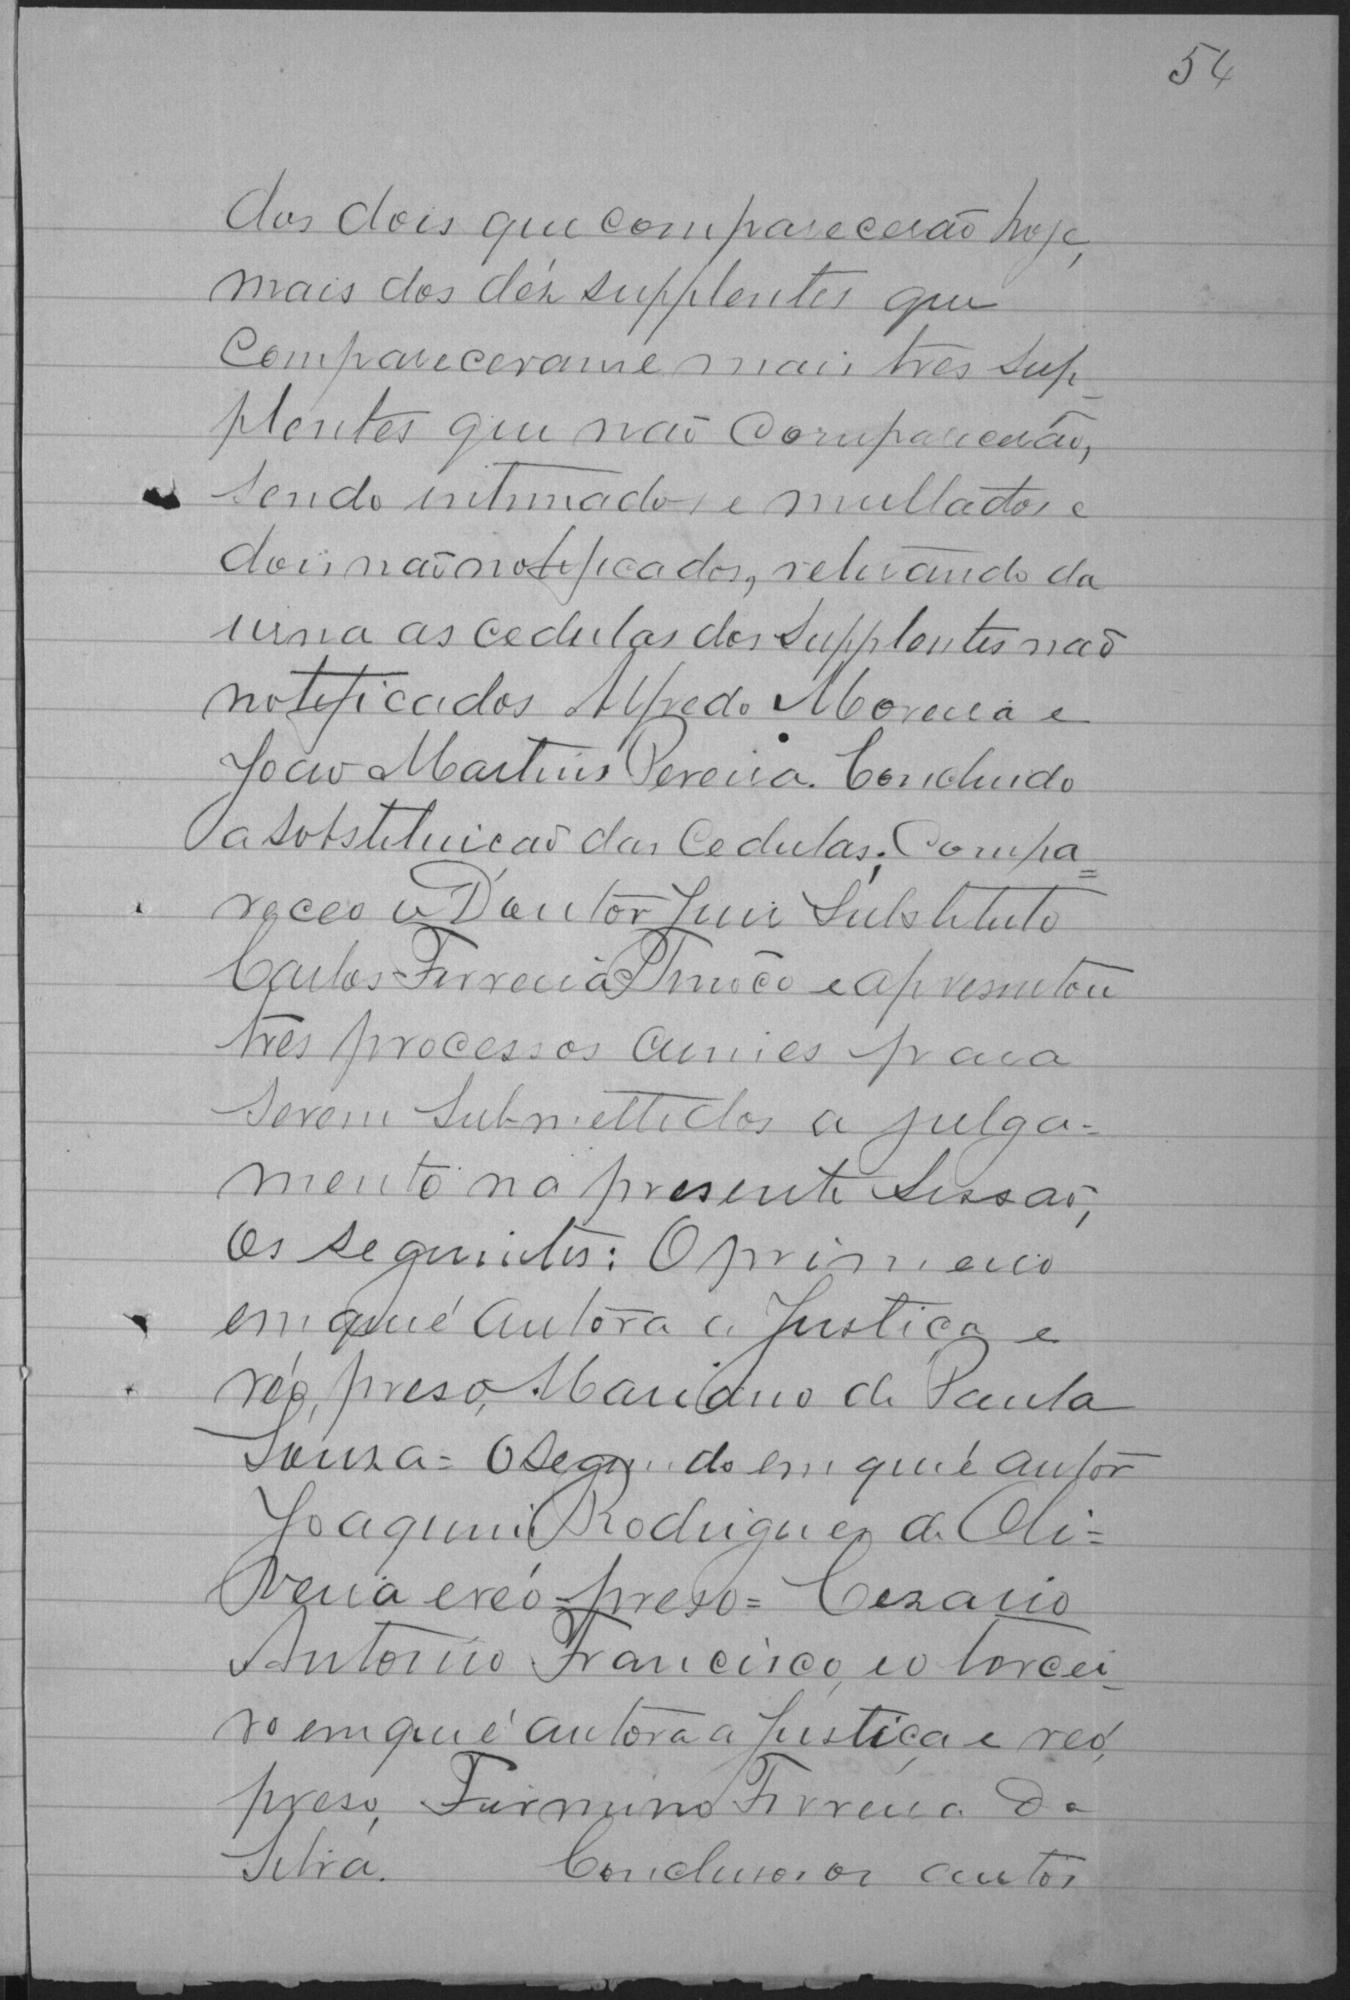 54
dos dois que comparecerão hoje,
mais dos déz supplentes que
compareceram e mais tres sup-
plentes que não comparecerão,
sendo intimados e multados e
dois não notificados, retirando da
urna as cedulas dos supplentes não
notificados Alfredo Moreira e
João Martins Pereira. Concluido
a sobstituicaõ das Cedulas; Compa=
receo o Doutor Juiz Substituto
Carlos Ferreira e apresentou
tres processos crimes para
serem submettidos a julga-
mento na presente Sessaõ,
os seguintes: O primeiro
em que é autora a Justiça e
réo, preso, Mariano de Paula
Souza= O segundo em que é autor
Joaquim Rodrigues de Oli=
veira e reó=preso= Cezario
Antonio Francisco, e o tercei-
ro em que é autora a Justiça e reó,
preso, Firmino Ferreira da
Silva. Conclusos os autos